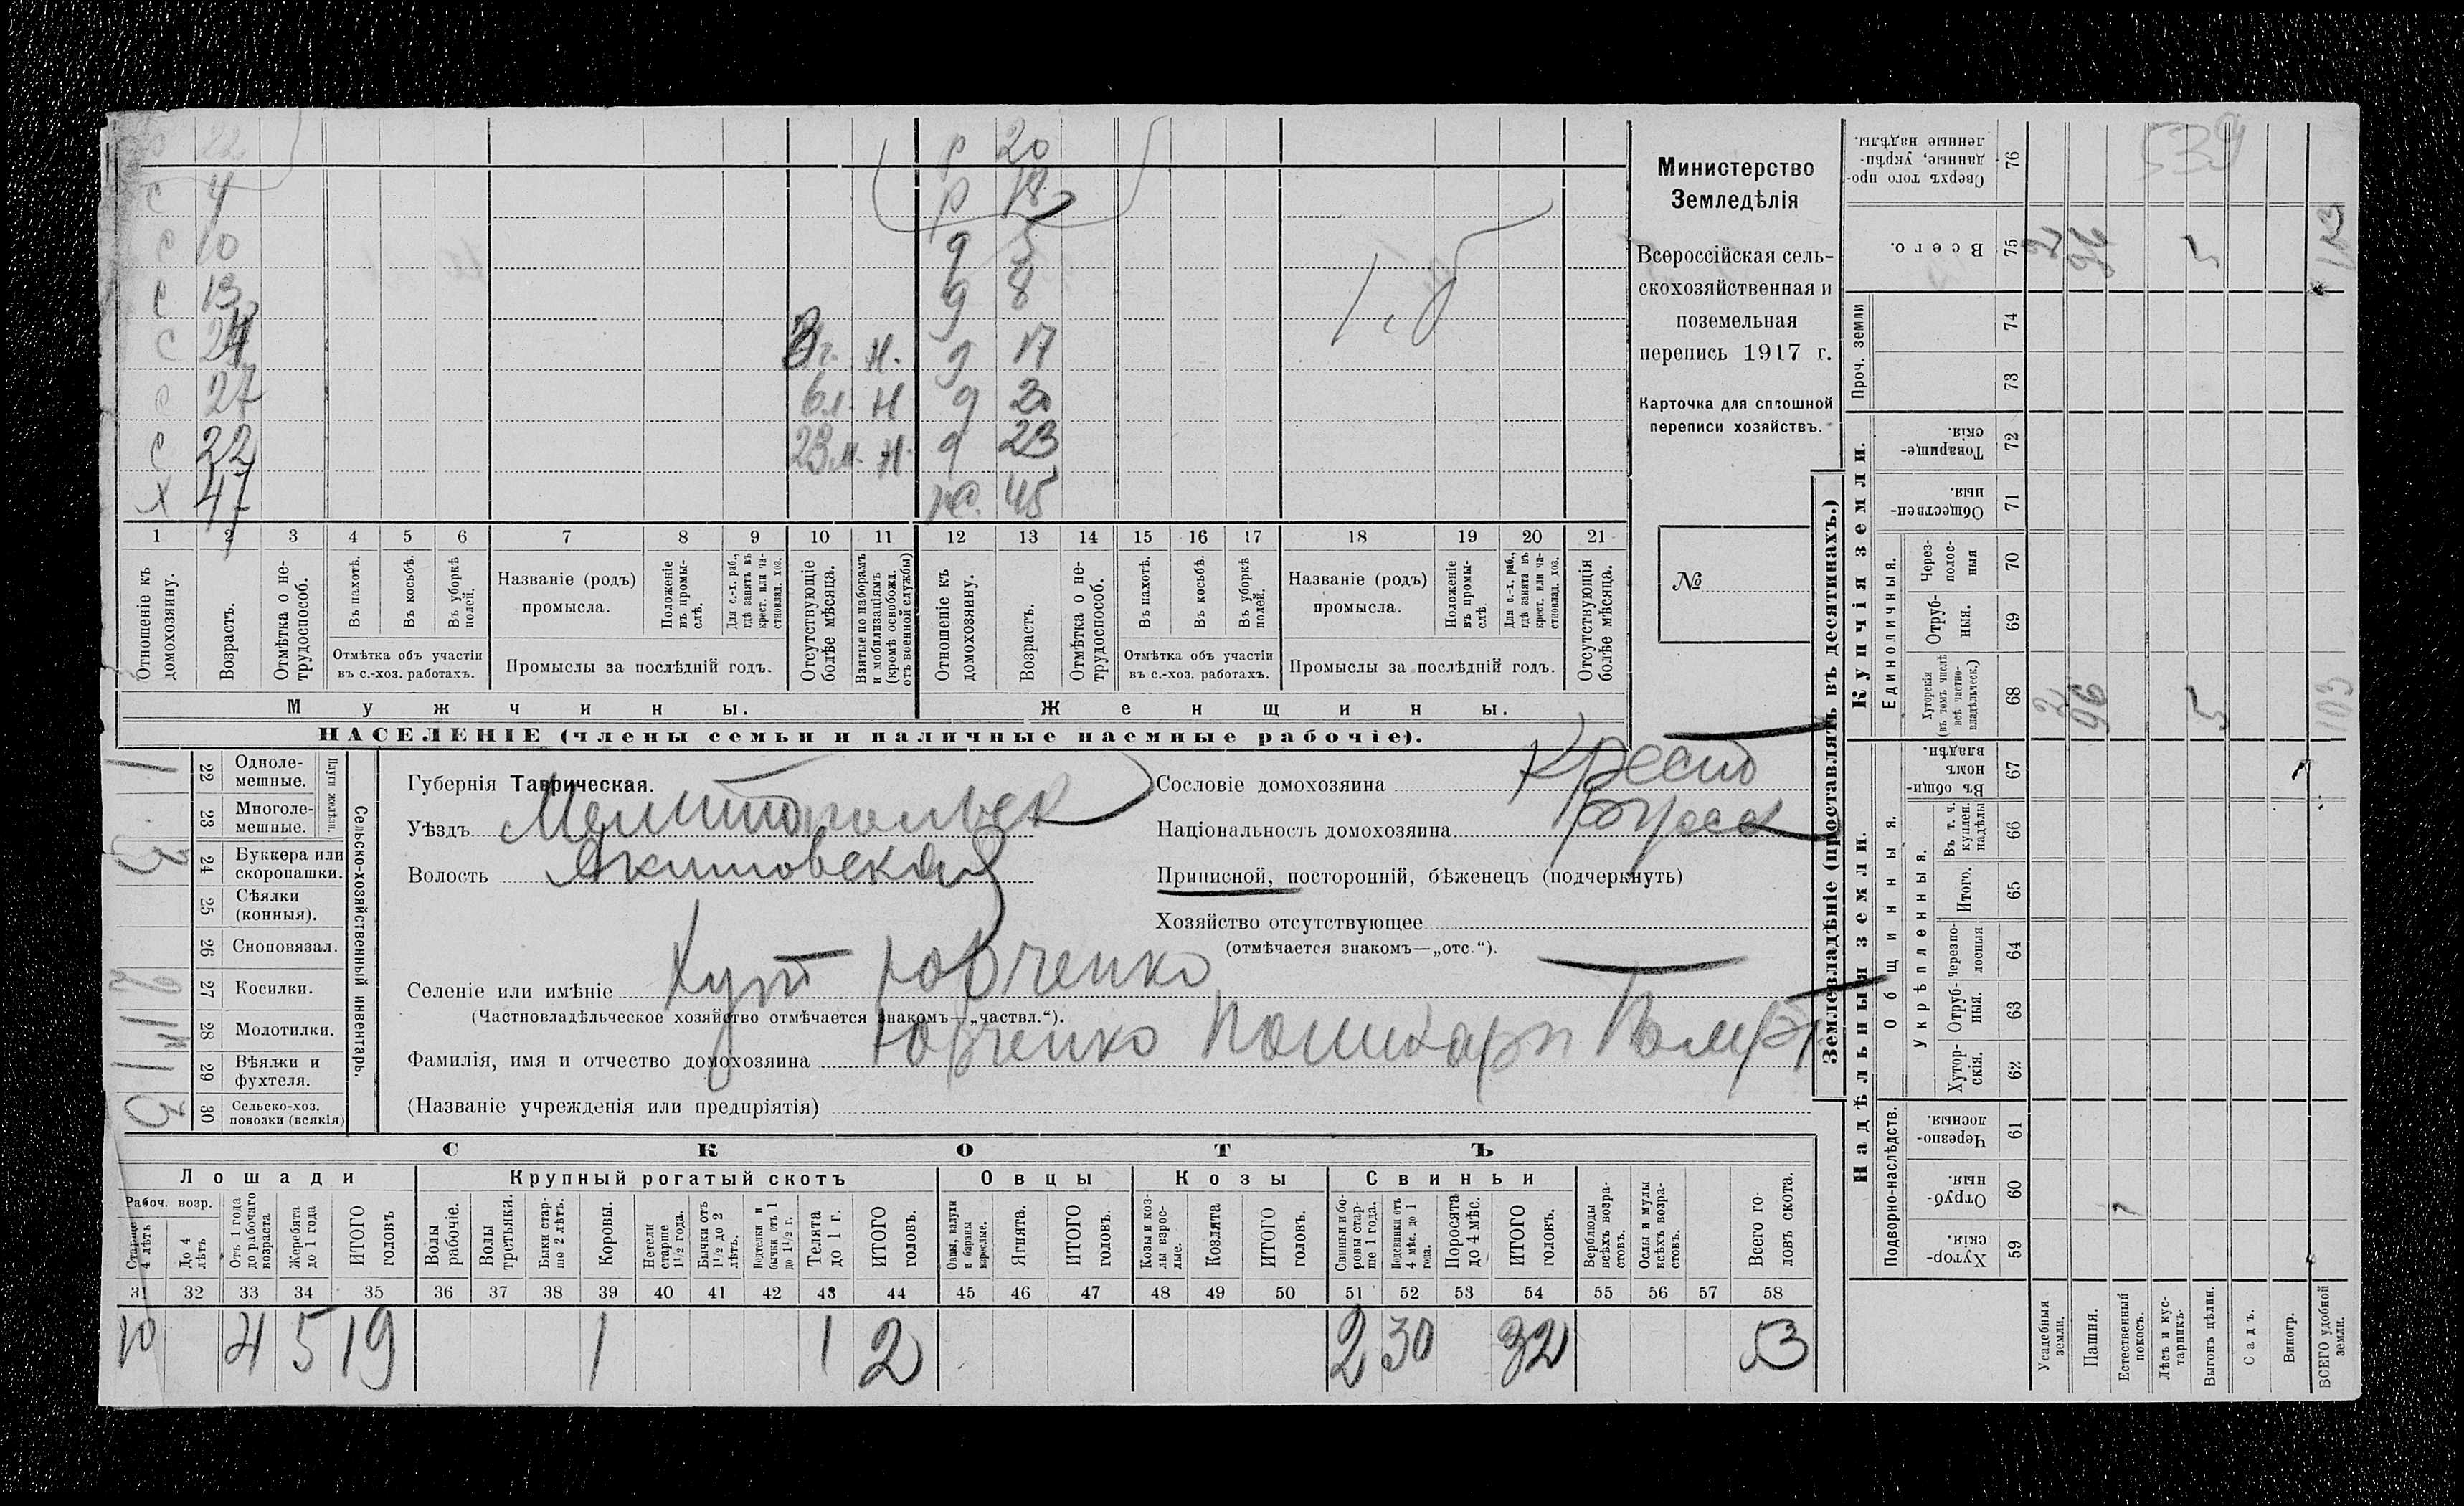 Министерство
Земледѣлія
Всероссійская сель-
скохозяйственная и
поземельная
перепись 1917 г.
Карточка для сплошной
переписи хозяйствъ.
№
р 20
р 18
с 4
с 10 д 5
с 13 д 8
с 24 3г. н. д 17
с 27 6л. н д 20
с 22 23м. н. д 23
х 47 ж. 45
1,5
1 2 3 4 5 6 7 8 9 10 11 12 13 14 15 16 17 18 19 20 21
Отношеніе къ домохозяину.
Возрастъ.
Отмѣтка о не-трудоспособ.
Въ пахотѣ.
Въ косьбѣ.
Въ уборкѣ полей.
Отмѣтка объ участіи въ с.-хоз. работахъ.
Названіе (родъ) промысла.
Положеніе въ промы-слѣ.
Для с.-х. раб., гдѣ занятъ въ крест. или ча-стновлад. хоз.
Промыслы за послѣдній годъ.
Отсутствующіе болѣе мѣсяца.
Взятые по наборамъ и мобилизаціямъ (кромѣ освобожд. отъ военной службы)
Отношеніе къ домохозяину.
Возрастъ.
Отмѣтка о не-трудоспособ.
Въ пахотѣ.
Въ косьбѣ.
Въ уборкѣ полей.
Отмѣтка объ участіи въ с.-хоз. работахъ.
Названіе (родъ) промысла.
Положеніе въ промы-слѣ
Для с.-х. раб., гдѣ занята въ крест. или ча-стновлад. хоз.
Промыслы за послѣдній годъ.
Отсутствующія болѣе мѣсяца.
Мужчины. Женщины.
НАСЕЛЕНІЕ (члены семьи и наличные наемные рабочіе).
22 Одноле-мешные.
23 Многоле-мешные.
Плуги желѣзн.
24 Буккера или скоропашки.
25 Сѣялки (конныя).
26 Сноповязал.
27 Косилки.
28 Молотилки.
29 Вѣялки и фухтеля.
30 Сельско-хоз. повозки (всякія)
Сельско-хозяйственный инвентарь.
Губернія Таврическая.
Уѣздъ Мелитопольск
Волость Акимовская
Сословіе домохозяина Крест
Національность домохозяина
Приписной, посторонній, бѣженецъ (подчеркнуть)
Хозяйство отсутствующее
(отмѣчается знакомъ—„отс.“).
Селеніе или имѣніе Хут Юрченко
(Частновладѣльческое хозяйство отмѣчается знакомъ—„частвл.“).
Фамилія, имя и отчество домохозяина Юрченко Поликарп
(Названіе учрежденія или предпріятія)
СКОТЪ
Лошади Крупный рогатый скотъ Овцы Козы Свиньи
Рабоч. возр.
Старше 4 лѣтъ
До 4 лѣтъ
Отъ 1 года до рабочаго возраста
Жеребята до 1 года
ИТОГО головъ
Волы рабочіе.
Волы третьяки.
Быки стар-ше 2 лѣтъ.
Коровы.
Нетели старше 1½ года.
Бычки отъ 1½ до 2 лѣтъ.
Подтелки и бычки отъ 1 до 1½ г.
Телята до 1 г.
ИТОГО головъ.
Овцы, валухи и бараны взрослые.
Ягнята.
ИТОГО головъ.
Козы и коз-лы взрос-лые.
Козлята
ИТОГО головъ.
Свиньи и бо-ровы стар-ше 1 года.
Подсвинки отъ 4 мѣс. до 1 года.
Поросята до 4 мѣс.
ИТОГО головъ.
Верблюды всѣхъ возра-стовъ.
Ослы и мулы всѣхъ возра-стовъ.
Всего го-ловъ скота.
31 32 33 34 35 36 37 38 39 40 41 42 43 44 45 46 47 48 49 50 51 52 53 54 55 56 57 58
10 4 5 19 1 1 2 2 30 32 53
Землевладѣніе (проставлять въ десятинахъ.)
Купчія земли.
Надѣльныя земли.
Сверхъ того про-данные, укрѣп-ленные надѣлы. 76
539
Всего. 75 2 96 5 103
Проч. земли 74 73
Товарище-скія. 72
Обществен-ныя. 71
Единоличныя.
Через-полос-ныя 70
Отруб-ныя. 69
Хуторскія (въ томъ числѣ всѣ частно-владѣльческ.) 68 2 96 5 103
Общинныя.
Въ общи-номъ владѣн. 67
Укрѣпленныя.
Въ т. ч. куплен. надѣлы 66
Итого. 65
Черезпо-лосныя 64
Отруб-ныя. 63
Хутор-скія. 62
Подворно-наслѣдств.
Черезпо-лосныя. 61
Отруб-ныя. 60
Хутор-скія. 59
Усадебныя земли.
Пашня.
Естественный покосъ.
Лѣсъ и кус-тарникъ.
Выгонъ цѣлин.
Садъ.
Виногр.
ВСЕГО удобной земли.